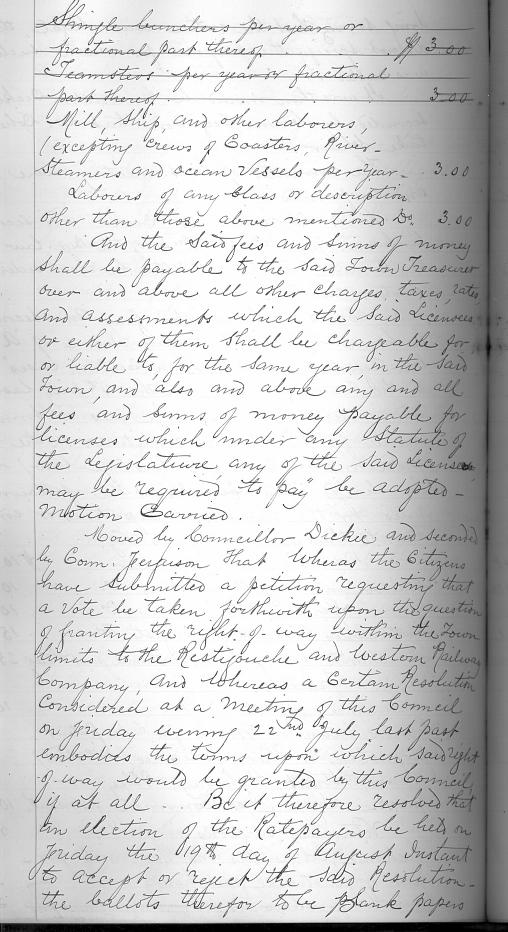 Shingle bunchers per year or
fractional part thereof . . . . . . $ 3.00
Teamsters per year or fractional
part thereof . . . . . 3.00
Mill, Ship, and other laborers,
(excepting crews of Coasters, River-
Steamers and ocean Vessels per year - 3.00
Labours of any Class or description
other than those above mentioned Do. 3.00
And the Said fees and Sums of money
Shall be payable to the Said Town Treasurer
over and above all other charges, taxes, rates,
and assessments which the Said Licencees
or either of them Shall be chargeable for
or liable to, for the same year, in the Said
Town, and also and above any and all
fees and Sums of money payable for
licenses which under any Statute of
the Legislature, any of the Said Licensees,
may be required to pay be adopted -
Motion Carried.
Moved by Councillor Dickie and seconded
by Coun. Ferguson That Whereas the Citizens
have Submitted a petition requesting that
a vote be taken forthwith upon the question
of franting the right-of-way within the Town
limits to the Restigouche and Western Railway
Company, And Whereas a Certain Resolution
Considered at a Meeting of this Council
on Friday evening 22nd July last past
embodies the terms upon which said right
of-way would be granted by this Council,
if at all . . . Be it therefore resolved that
an election of the Ratepayers be held on
Friday the 19th day of August Instant
to accept or reject the Said Resolution -
the ballots therefor to be blank papers